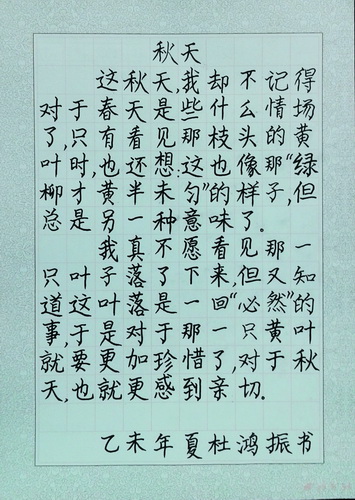 秋天
这秋天,我却不记得
对于春天是些什么情场
了,只有看见那枝头的黄
叶时,也还想:这也像那“绿
柳才黄半未匀”的样子,但
总是另一种意味了.
我真不愿看见那一
只叶子落了下来,但又知
道这叶落是一回“必然”的
事,于是对于那一只黄叶
就要更加珍惜了,对于秋
天,也就更感到亲切.
乙未年夏杜鸿振书